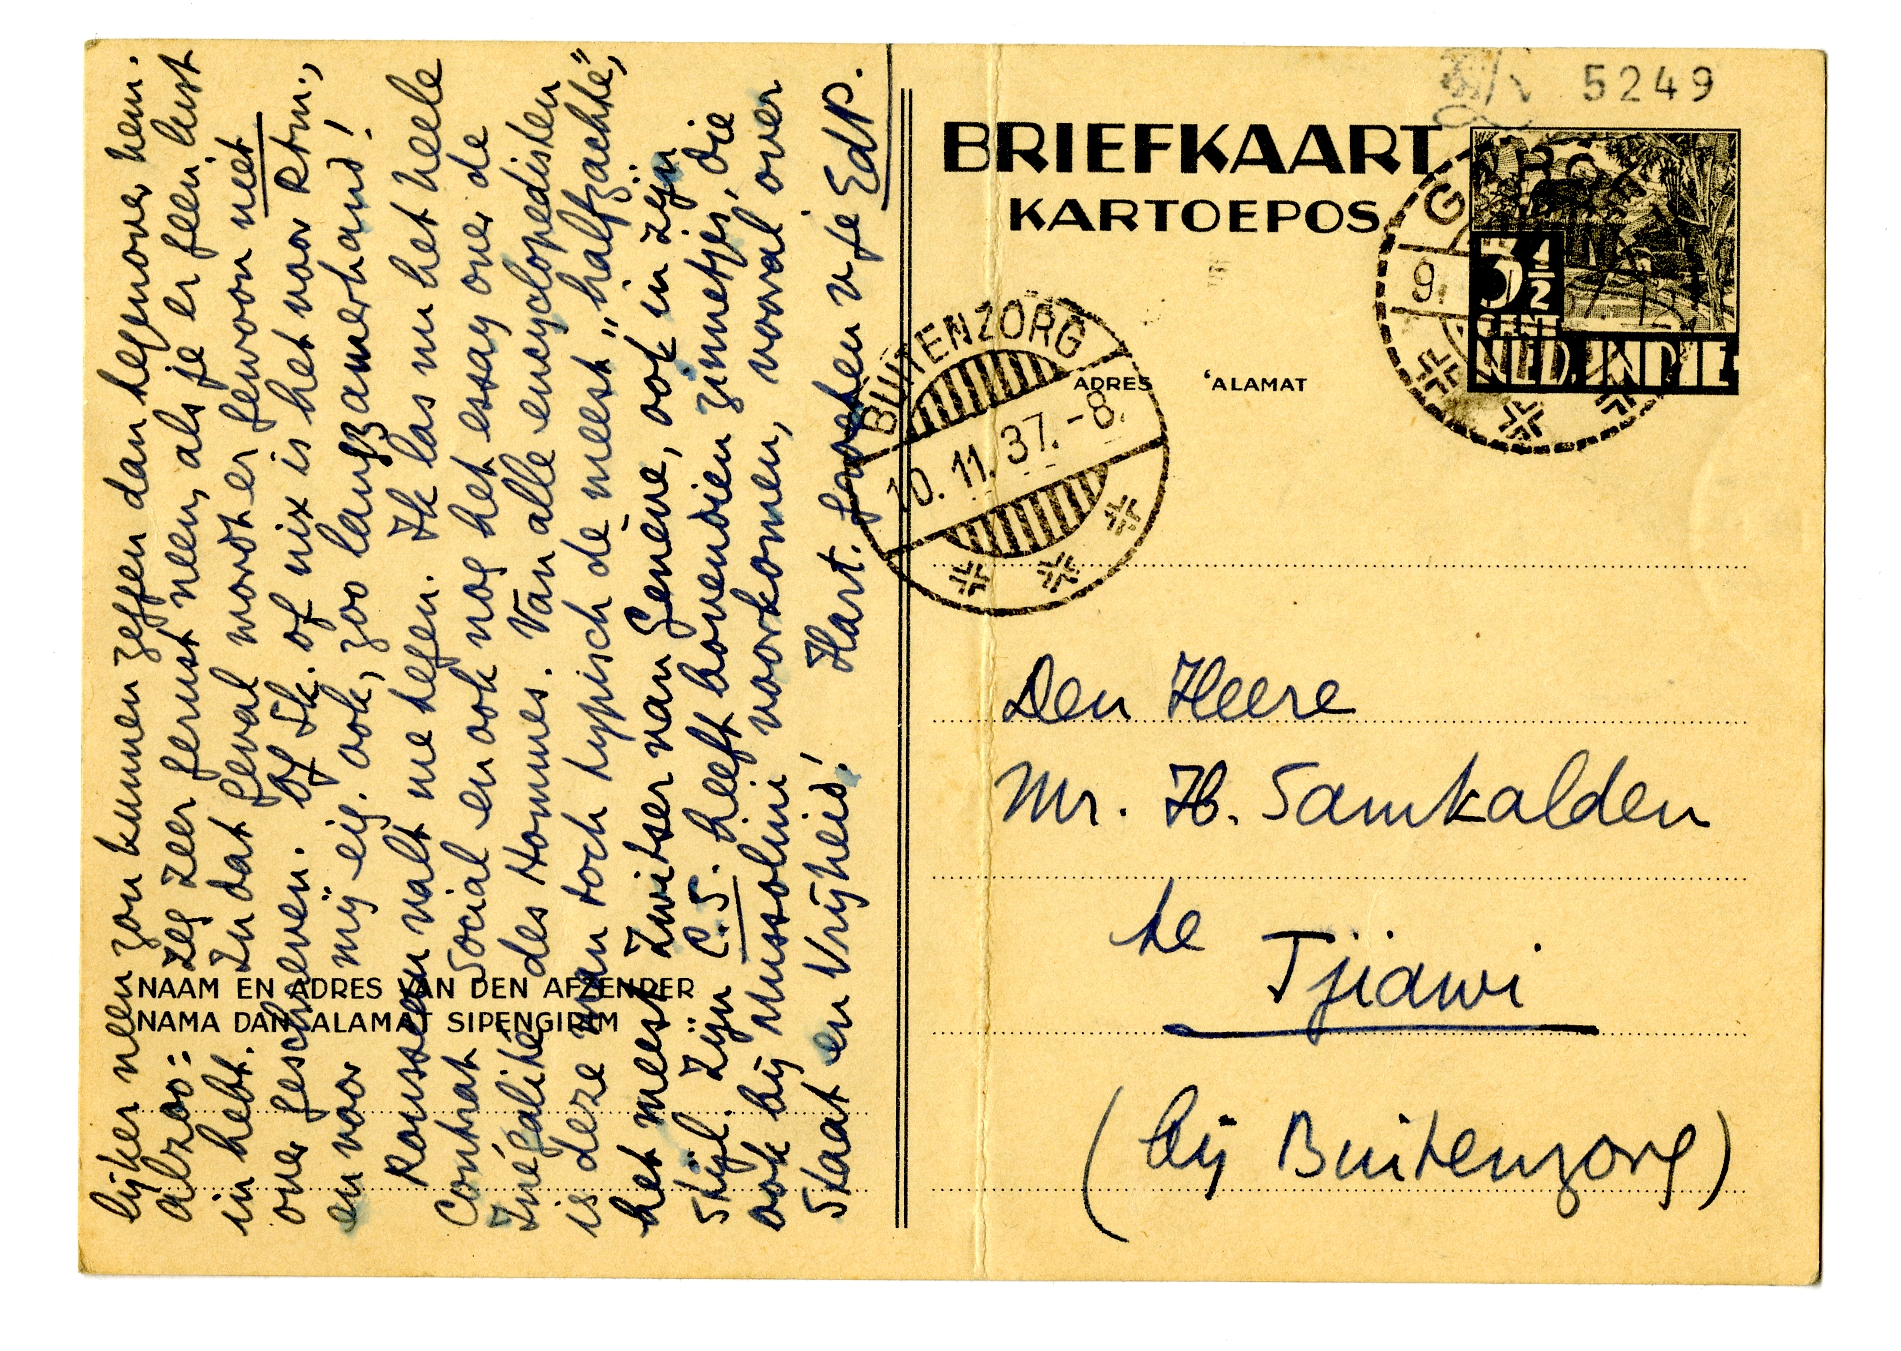 lijker neen zou kunnen zeggen dan tegenover hem.
Alzoo: zeg zeer gerust neen, als je er geen lust
in hebt. In dat geval wordt er gewoon niet
over geschreven. Of Sk. of nix is het voor Rtm.,
en voor mij eig. ook, zoo langzamerhand!
Rousseau valt me tegen. Ik las nu het heele
Contrat Social en ook nog het essay over de
Inégalité des Hommes. Van alle encyclopedisten
is deze man toch typisch de meest „halfzachte”,
het meest Zwitser van Genève, ook in zijn
stijl. Zijn C.S. heeft bovendien zinnetjes, die
ook bij Mussolini voorkomen, vooral over
Staat en Vrijheid! Hart. groeten v. je EdP.
NAAM EN ADRES VAN DEN AFZENDER
NAMA DAN 'ALAMAT SIPENGIRIM :
5249
BRIEFKAART
KARTOEPOS
3½
CENT
NED. INDIE
BUITENZORG
10.11.37.-8.
ADRES 'ALAMAT
Den Heere
Mr. H. Samkalden
te Tjiawi
(bij Buitenzorg)